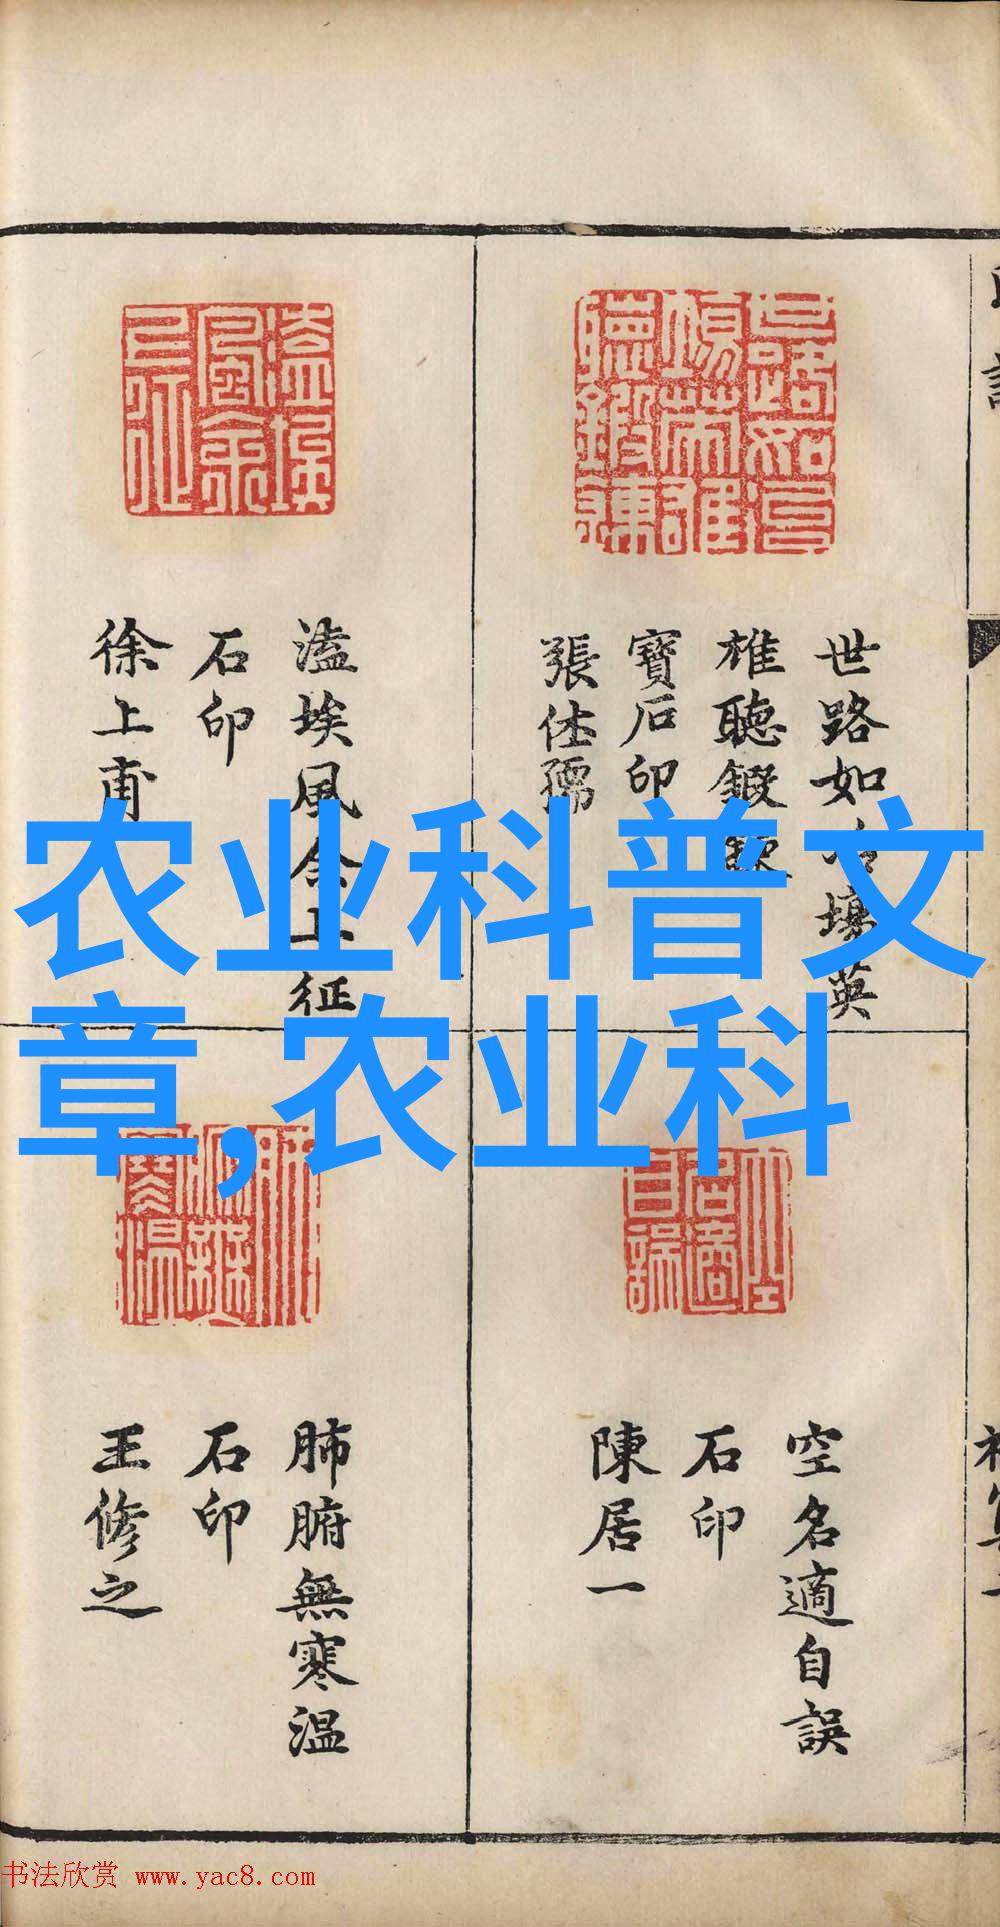 农业科普文
章,农业科
世路如冶場英
雄聽鍛鍊
寶石印
張仕孺
溘埃風余上征
石印
徐上甫
空名適自誤
石印
陳居一
肺腑無寒温
石印
王修之
书法欣赏 www.yac8.com